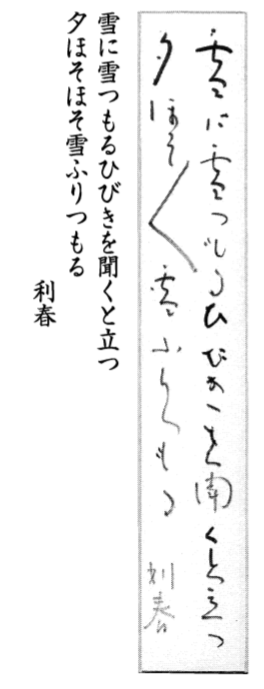 雪に雪つもるひびきを聞くと立つ
夕ほそ〳〵雪ふりつもる
利春
雪に雪つもるひびきを聞くと立つ
夕ほそほそ雪ふりつもる
利春